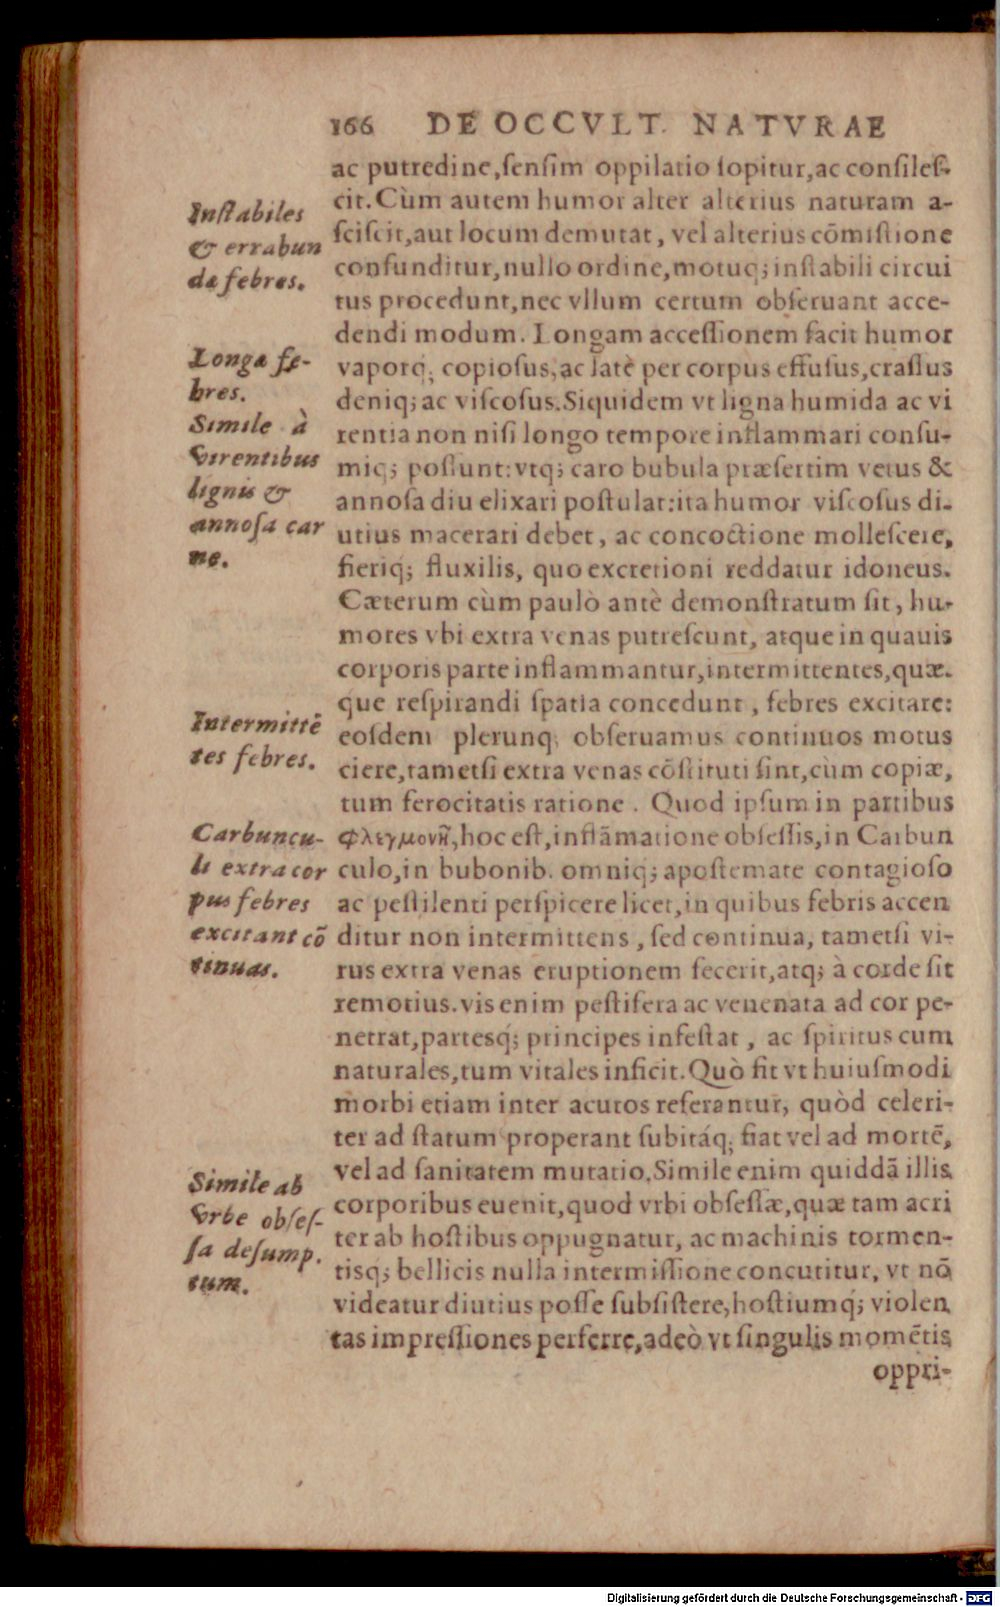 166 DE OCCVLT. NATVRAE
ac putredine,ſenſim oppilatio ſopitur,ac conſileſ-
cit.Cùm autem humor alter alterius naturam a-
ſciſcit,aut locum demutat, vel alterius cōmiſtione
confunditur,nullo ordine,motuq́; inſtabili circui
tus procedunt,nec vllum certum obſeruant acce-
dendi modum. Longam acceſſionem facit humor
vaporq́; copioſus,ac latè per corpus effuſus,craſſus
deniq; ac viſcoſus.Siquidem vt ligna humida ac vi
rentia non niſi longo tempore inflammari conſu-
miq́; poſſunt:vtq; caro bubula præſertim vetus &
annoſa diu elixari poſtulat:ita humor viſcoſus di-
utius macerari debet, ac concoctione molleſcere,
fieriq́; fluxilis, quo excretioni reddatur idoneus.
Cæterum cùm paulò antè demonſtratum ſit, hu-
mores vbi extra venas putreſcunt, atque in quauis
corporis parte inflammantur,intermittentes,quæ-
que reſpirandi ſpatia concedunt, febres excitare:
eoſdem plerunq; obſeruamus continuos motus
ciere,tametſi extra venas cōſtituti ſint,cùm copiæ,
tum ferocitatis ratione. Quod ipſum in partibus
φλεγμονῇ,hoc eſt,inflāmatione obſeſſis,in Carbun
culo,in bubonib. omniq; apoſtemate contagioſo
ac peſtilenti perſpicere licet,in quibus febris accen
ditur non intermittens, ſed continua, tametſi vi-
rus extra venas eruptionem fecerit,atq; à corde ſit
remotius.vis enim peſtifera ac venenata ad cor pe-
netrat,partesq́; principes infeſtat, ac ſpiritus cum
naturales,tum vitales inficit.Quò fit vt huiuſmodi
morbi etiam inter acutos referantur, quòd celeri-
ter ad ſtatum properant ſubitáq; fiat vel ad mortē,
vel ad ſanitatem mutatio.Simile enim quiddā illis
corporibus euenit,quod vrbi obſeſſæ,quæ tam acri
ter ab hoſtibus oppugnatur, ac machinis tormen-
tisq; bellicis nulla intermiſſione concutitur, vt nō
videatur diutius poſſe ſubſiſtere,hoſtiumq́; violen
tas impreſſiones perferre,adeò vt ſingulis momētis
oppri-
Inſtabiles
& errabun
dæ febres.
Longæ fe-
bres.
Simile à
virentibus
lignis &
annoſa car
ne.
Intermittē
tes febres.
Carbuncu-
li extra cor
pus febres
excitant cō
tinuas.
Simile ab
vrbe obſeſ-
ſa deſump.
tum.
Digitalisierung gefördert durch die Deutsche Forschungsgemeinschaft - DFG